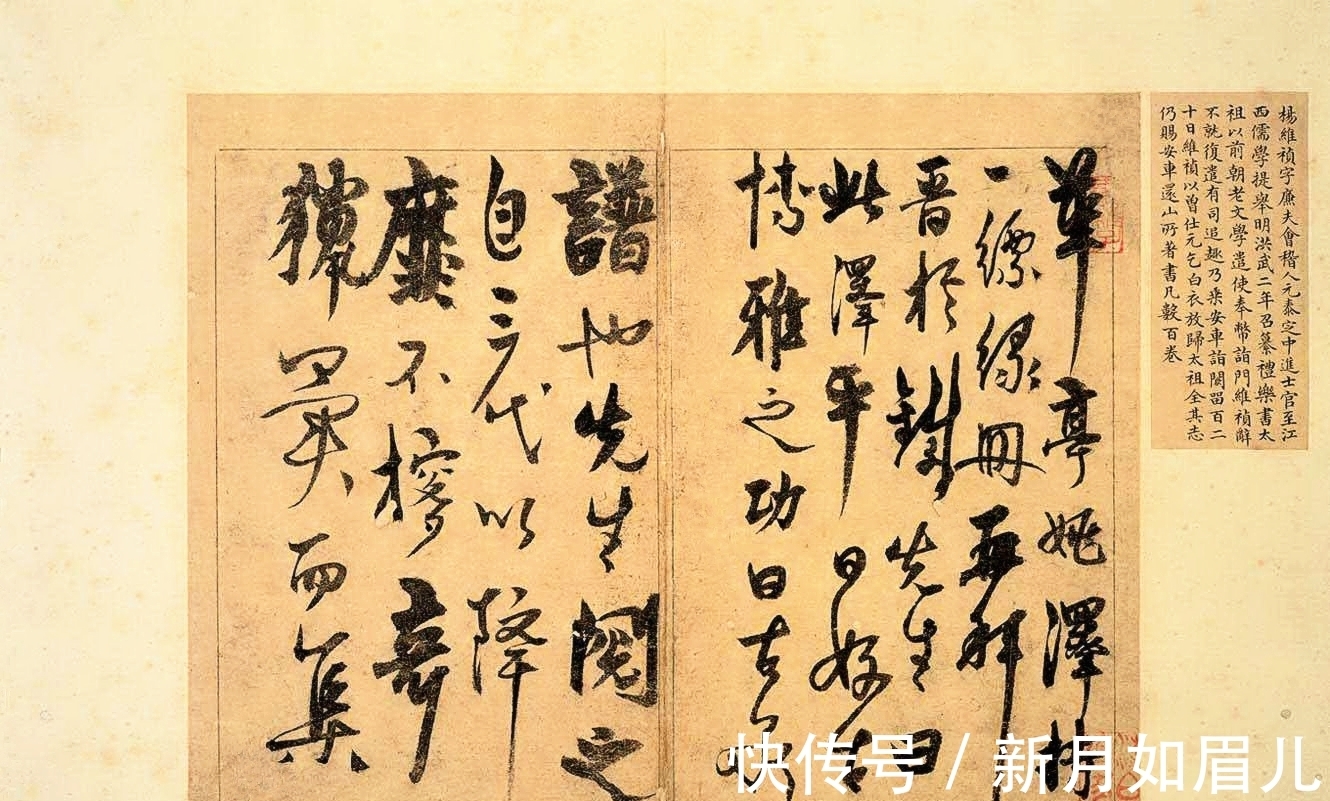 楊維禎字廉夫會稽人元泰定中進士官至江
西儒學提舉明洪武二年召纂禮樂書太
祖以前朝老文學遣使奉幣詣門維禎辭
不就復遣有司追趣乃乘安車詣闕留百二
十日維禎以曾仕元乞白衣放歸太祖全其志
仍賜安車還山所著書凡數百卷
華亭姚澤持
一縹緣冊再拜
晉於鐵先生曰
此澤平日好古
博雅之功曰古泉
譜也先生閱之
自三代以降
靡不奇
獵異而集
快传号/新月如眉儿